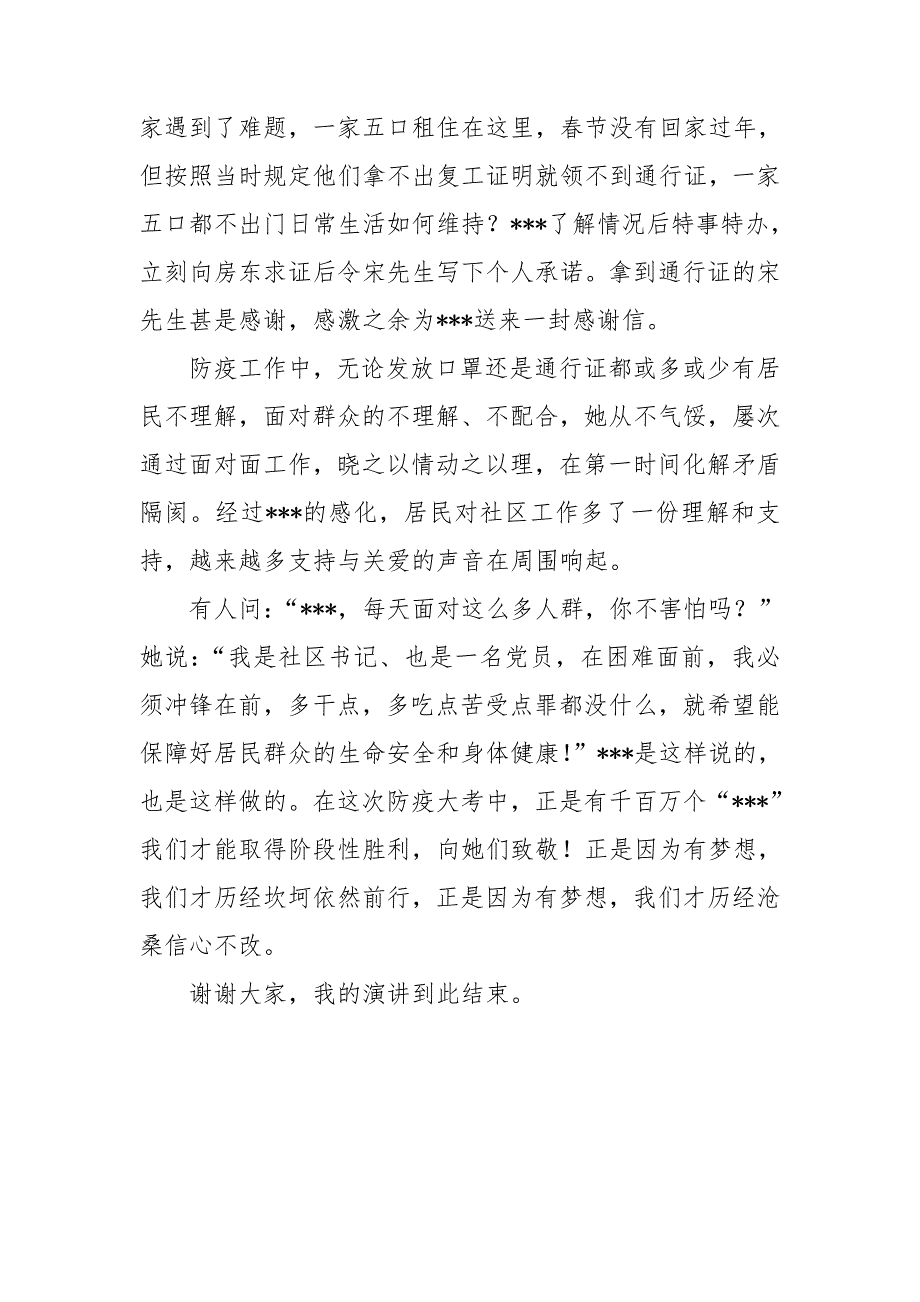 家遇到了难题，一家五口租住在这里，春节没有回家过年，
但按照当时规定他们拿不出复工证明就领不到通行证，一家
五口都不出门日常生活如何维持？***了解情况后特事特办，
立刻向房东求证后令宋先生写下个人承诺。拿到通行证的宋
先生甚是感谢，感激之余为***送来一封感谢信。
防疫工作中，无论发放口罩还是通行证都或多或少有居
民不理解，面对群众的不理解、不配合，她从不气馁，屡次
通过面对面工作，晓之以情动之以理，在第一时间化解矛盾
隔阂。经过***的感化，居民对社区工作多了一份理解和支
持，越来越多支持与关爱的声音在周围响起。
有人问：“***，每天面对这么多人群，你不害怕吗？”
她说：“我是社区书记、也是一名党员，在困难面前，我必
须冲锋在前，多干点，多吃点苦受点罪都没什么，就希望能
保障好居民群众的生命安全和身体健康！”***是这样说的，
也是这样做的。在这次防疫大考中，正是有千百万个“***”
我们才能取得阶段性胜利，向她们致敬！正是因为有梦想，
我们才历经坎坷依然前行，正是因为有梦想，我们才历经沧
桑信心不改。
谢谢大家，我的演讲到此结束。